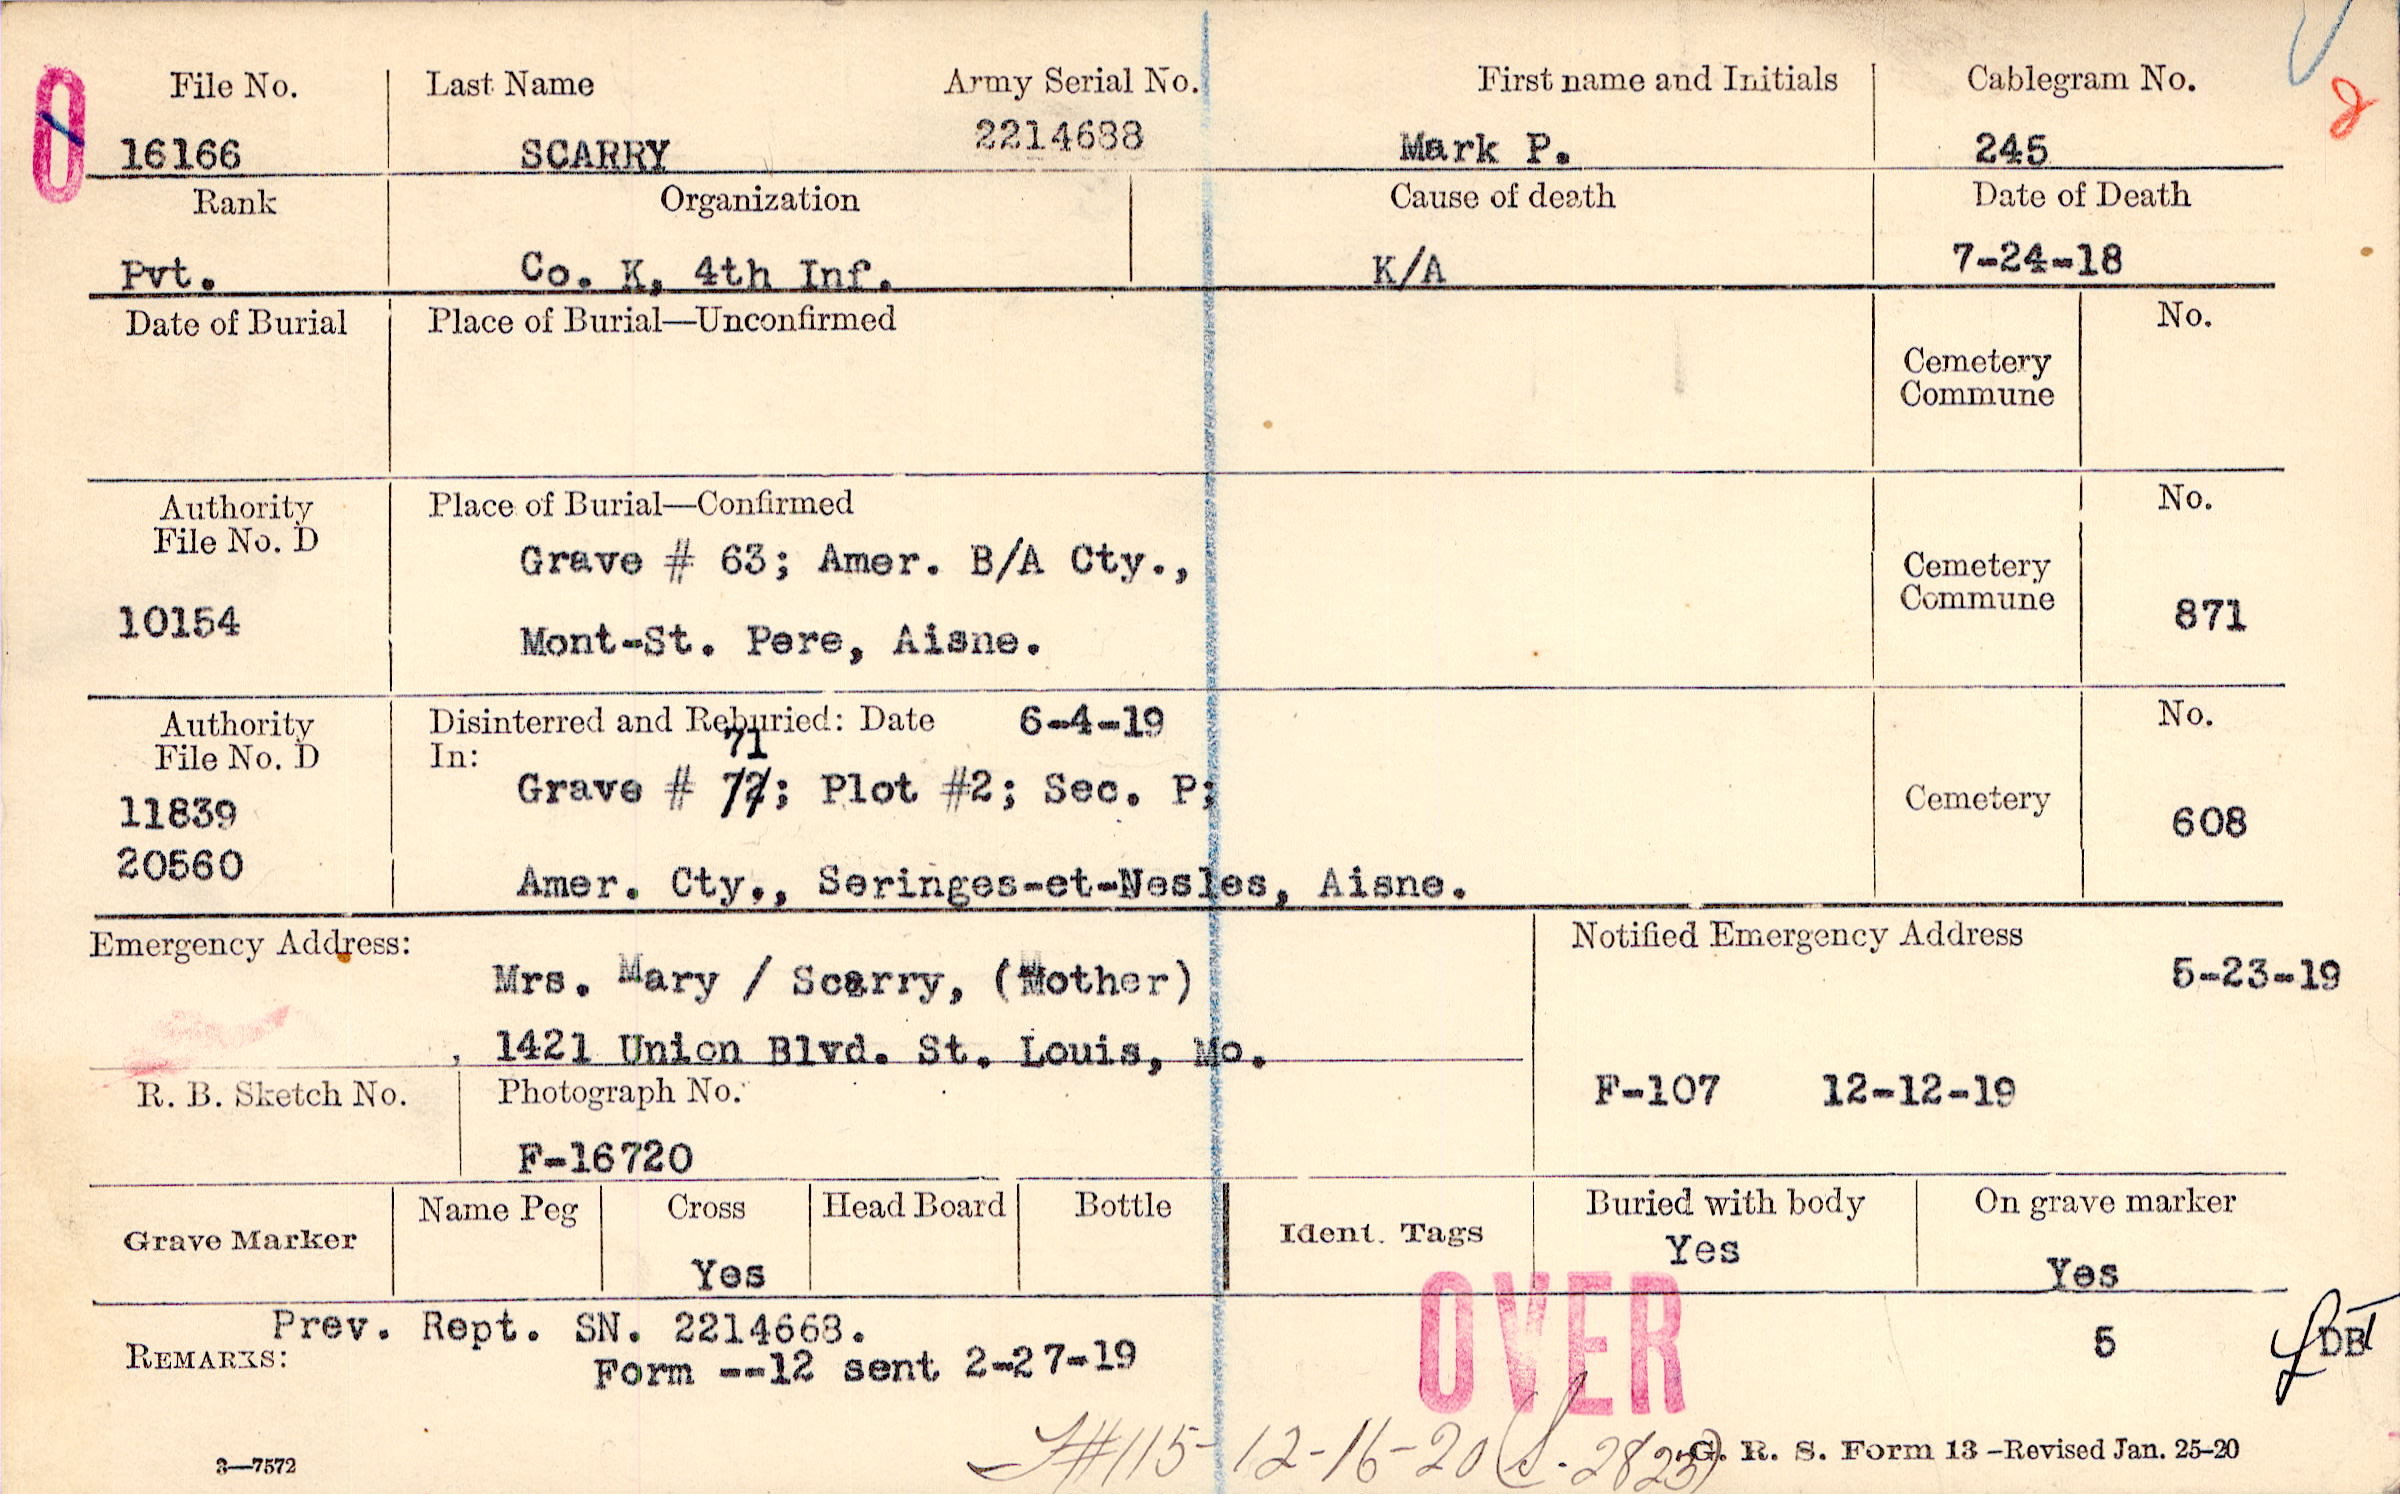 File No. Last Name Army Serial No. First name and Initials Cablegram No.
16166 SCARRY 2214688 Mark P. 245
Rank Organization Cause of death Date of Death
Pvt. Co. K, 4th Inf. K/A 7-24-18
Date of Burial Place of Burial—Unconfirmed No.
Cemetery
Commune
Authority Place of Burial—Confirmed No.
File No. D
Grave # 63; Amer. B/A Cty., Cemetery
Commune
10154 871
Mont-St. Pere, Aisne.
Authority Disinterred and Reburied: Date 6-4-19 No.
File No. D In: 71
Grave # 77; Plot #2; Sec. P; Cemetery
11839 608
20560
Amer. Cty., Seringes-et-Nesles, Aisne.
Emergency Address: Notified Emergency Address
Mrs. Mary / Scarry, (Mother) 5-23-19
1421 Union Blvd. St. Louis, Mo.
R. B. Sketch No. Photograph No. F-107 12-12-19
F-16720
Grave Marker Name Peg Cross Head Board Bottle Ident. Tags Buried with body On grave marker
Yes Yes Yes
OVER
Prev. Rept. SN. 2214668. 5 DB
REMARKS: Form --12 sent 2-27-19
#115-12-16-20
3—7572 G. R. S. Form 13 -Revised Jan. 25-20